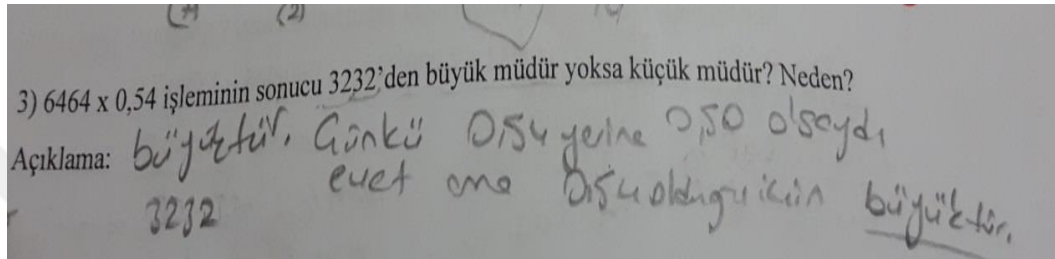 (2)
3) 6464 x 0,54 işleminin sonucu 3232'den büyük müdür yoksa küçük müdür? Neden?
Açıklama: büyüktür. Çünkü 0,54 yerine 0,50 olsaydı
3232 evet ama 0,54 olduğu için büyüktür.